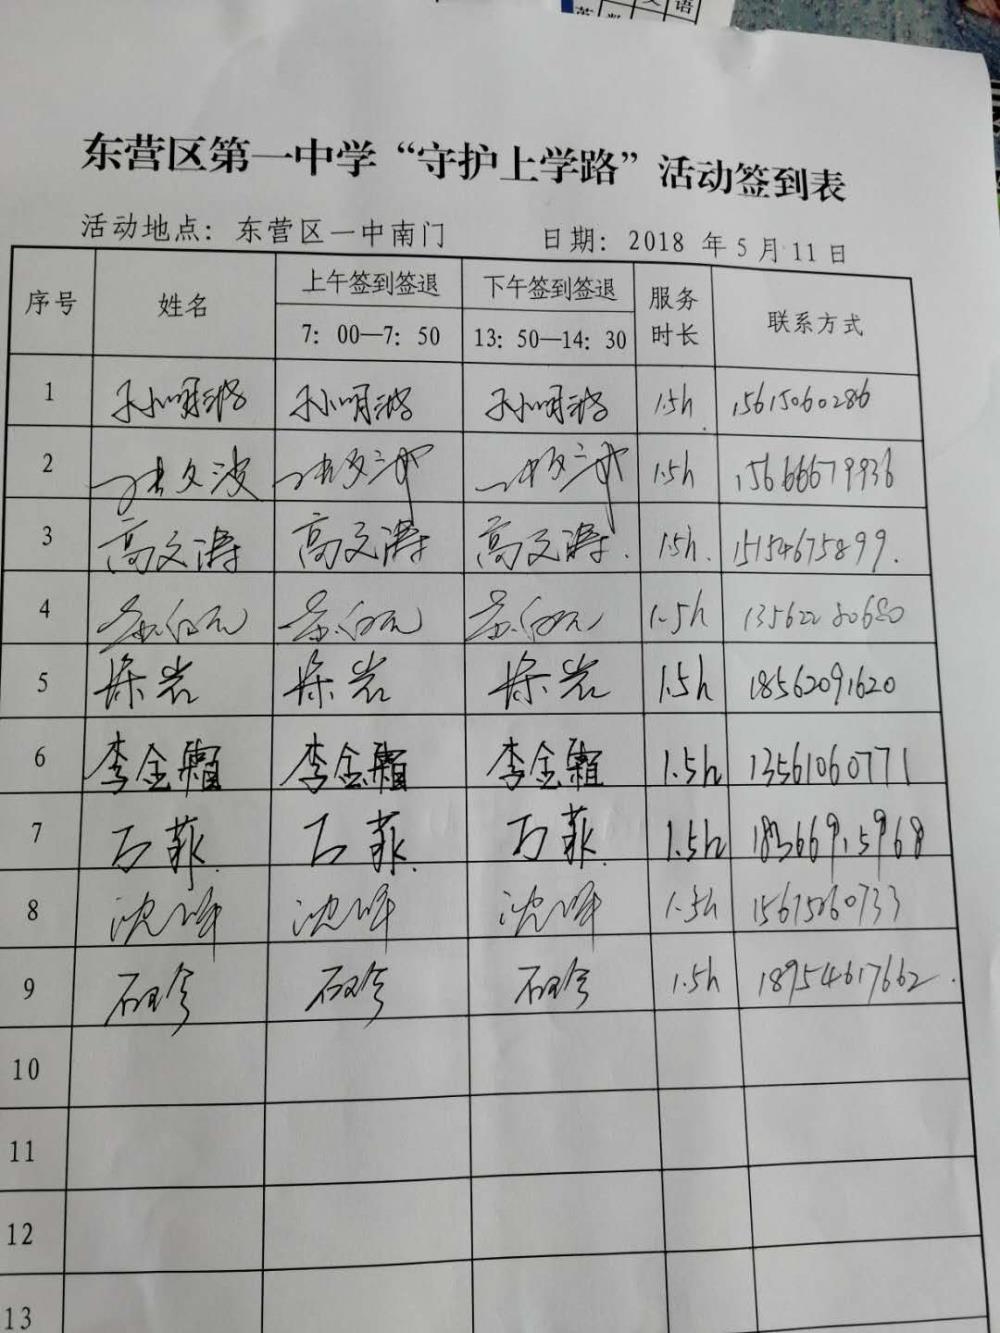 东营区第一中学“守护上学路”活动签到表
活动地点：东营区一中南门 日期：2018 年 5 月 11 日
序号 姓名 上午签到签退 下午签到签退 服务时长 联系方式
7：00—7：50 13：50—14：30
1 1.5h 15615060286
2 张文波 1.5h 15666679936
3 高文涛 高文涛 高文涛. 1.5h. 15154675899.
4 1.5h 13562280680
5 徐岩 徐岩 徐岩 1.5h 18562091620
6 李金霜 李金霜 李金霜 1.5h 13561060771
7 石菲. 石菲. 石菲. 1.5h 18366915968
8 沈峰 沈峰 沈峰 1.5h 15675060733
9 1.5h 18954617662.
10
11
12
13